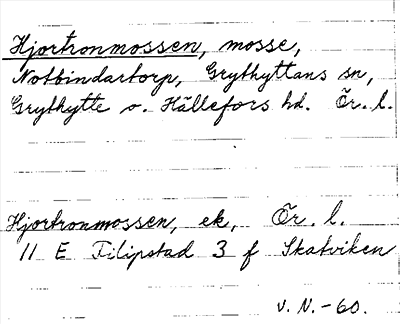 Hjortronmossen, mosse,
Notbindartorp, Grythyttans sn,
Grythytte o. Hällefors hd. Ör. l.
Hjortronmossen, ek, Ör. l.
11 E Filipstad 3 f Skatviken
V. N. - 60.